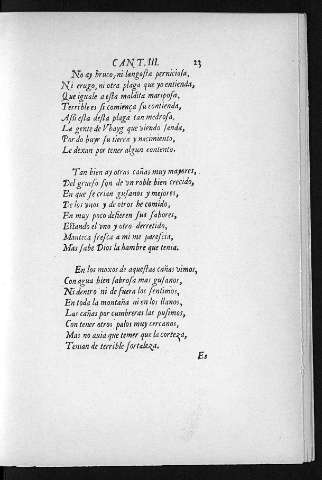 CANT. III. 23
No ay bruco, ni langosta perniciosa,
Ni erugo, ni otra plaga que yo entienda,
Que iguale a esta maldita mariposa,
Terrible es si comiença su contienda,
Assi esta desta plaga tan medrosa,
La gente de Vbayg que viendo
Por do huyr su tierra y nacimiento,
Le dexan por tener algun contento.
Tan bien ay otras cañas muy mayores,
Del grueso son de vn roble bien crecido,
En que se crian gusanos y mejores,
De los vnos y de otros he comido,
En muy poco defieren sus sabores,
Estando el vno y otro derretido,
Manteca fresca a mi me parescia,
Mas sabe Dios la hambre que tenia.
En los moxos de aquestas cañas vimos,
Con agua bien sabrosa mas gusanos,
Ni dentro ni de fuera los sentimos,
En toda la montaña ni en los llanos,
Las cañas por cumbreras las pusimos,
Con tener otros palos muy cercanos,
Mas no auia que temer que la corteza,
Tenian de terrible fortaleza.
Es